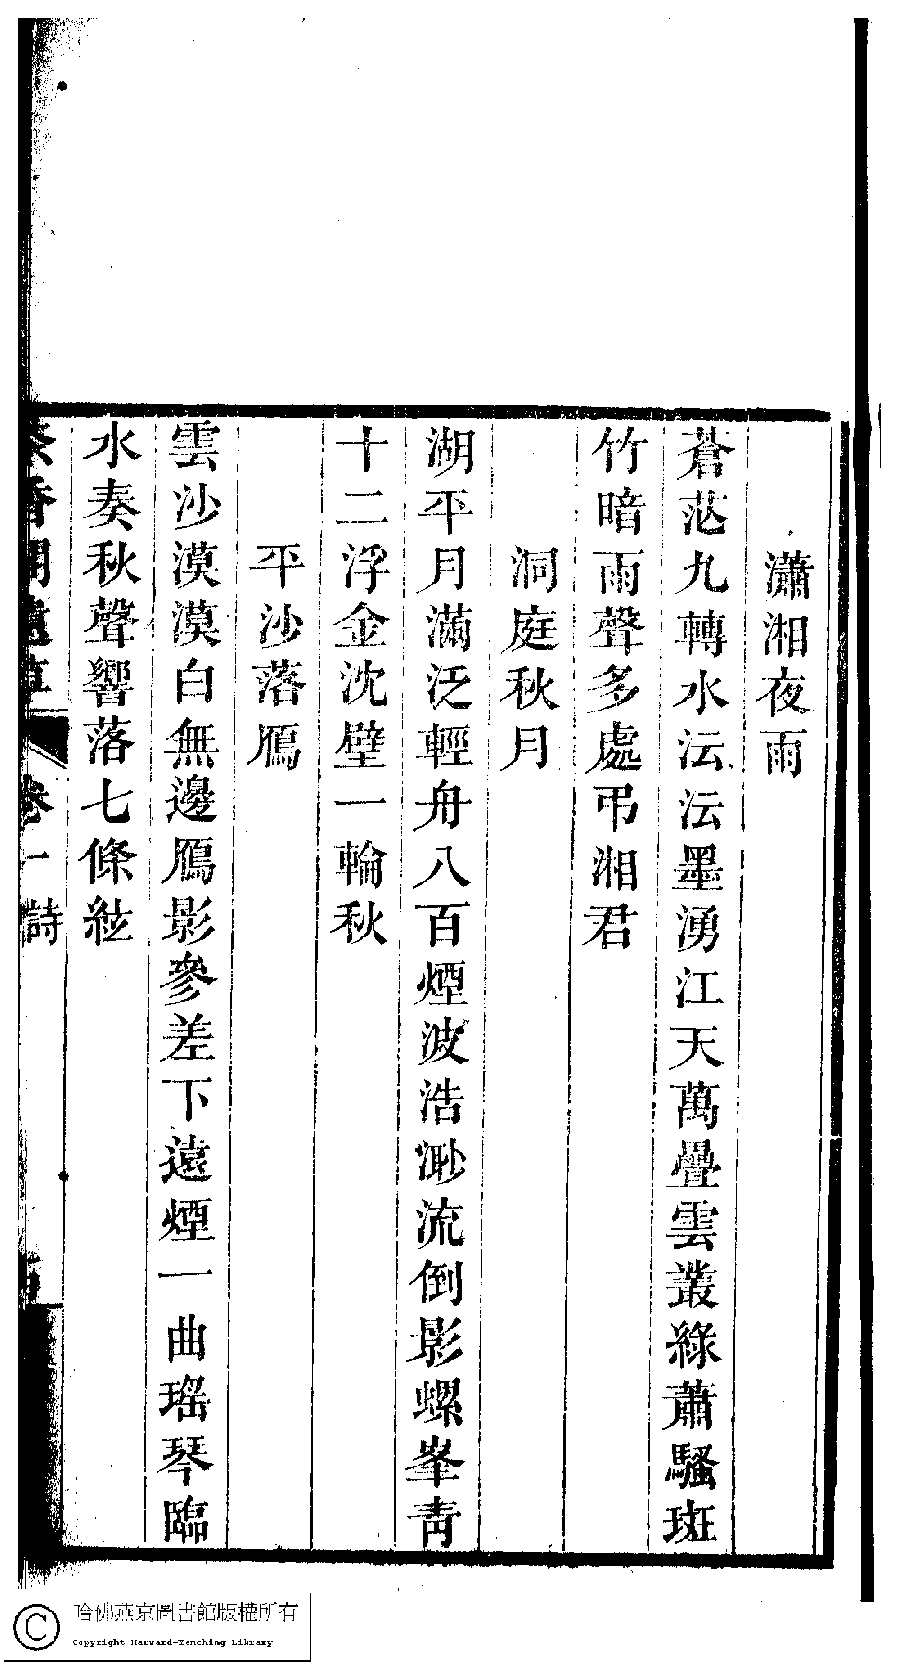 瀟湘夜雨
蒼茫九轉水沄沄墨湧江天萬疊雲叢綠蕭騷斑
竹暗雨聲多處弔湘君
洞庭秋月
湖平月滿泛輕舟八百煙波浩渺流倒影螺峯青
十二浮金沈璧一輪秋
平沙落鴈
雲沙漠漠白無邊鴈影參差下遠煙一曲瑤琴臨
水奏秋聲響落七條絃
卷一 詩
哈佛燕京圖書館版權所有
Copyright Harvard-Yenching Library